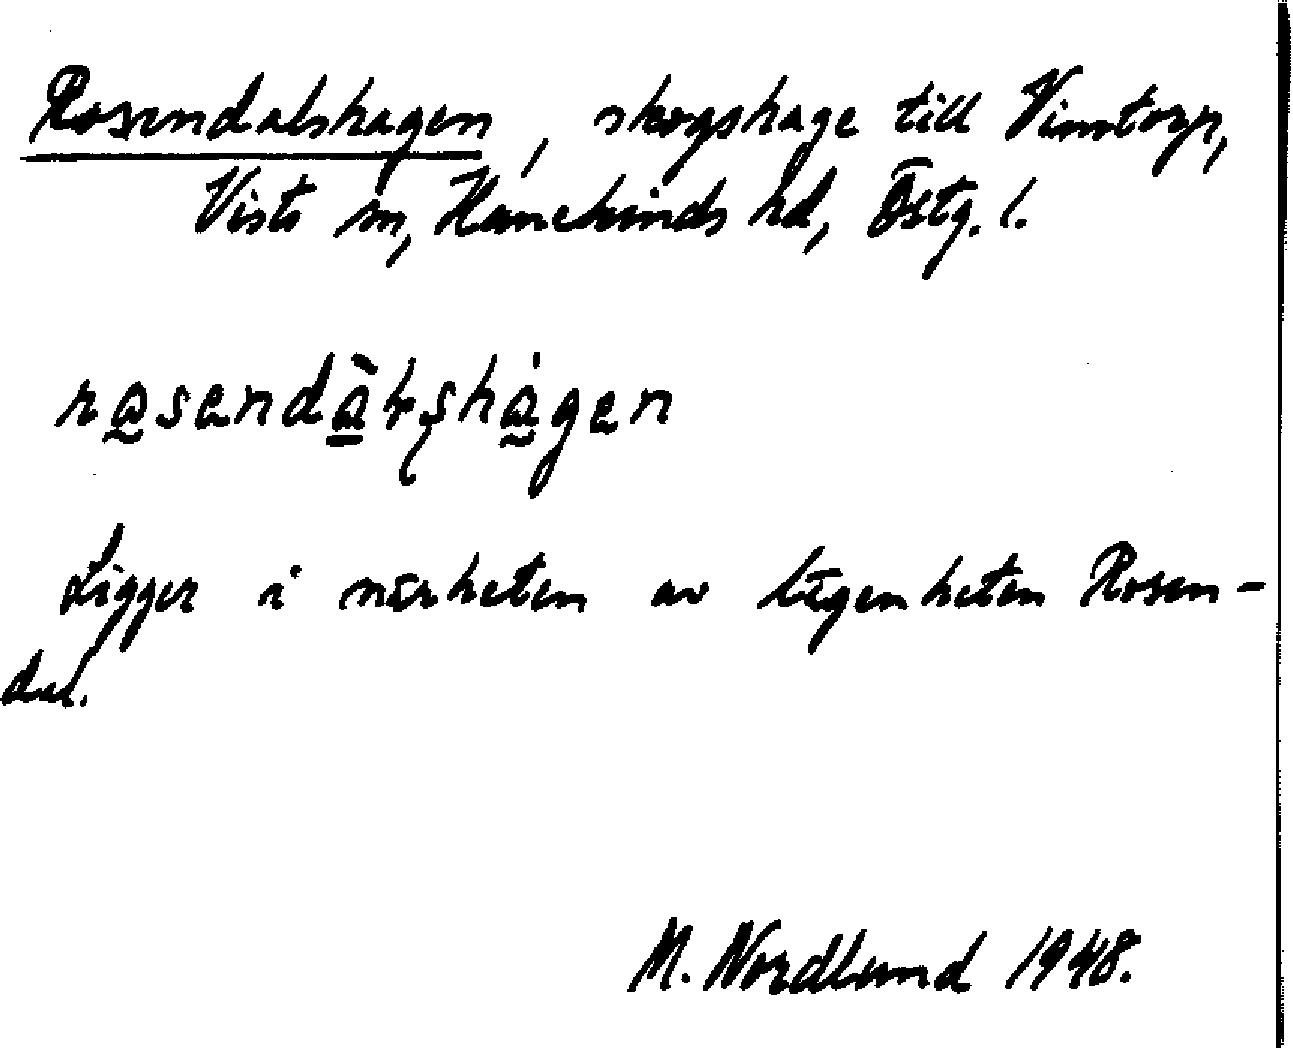 Rosendalshagen, skogshage till Vimtorp,
Vists sn, Hanekinds hd, Östg. l.
rosendàlshágen
Ligger i närheten av lägenheten Rosen-
dal.
M. Nordlund 1948.